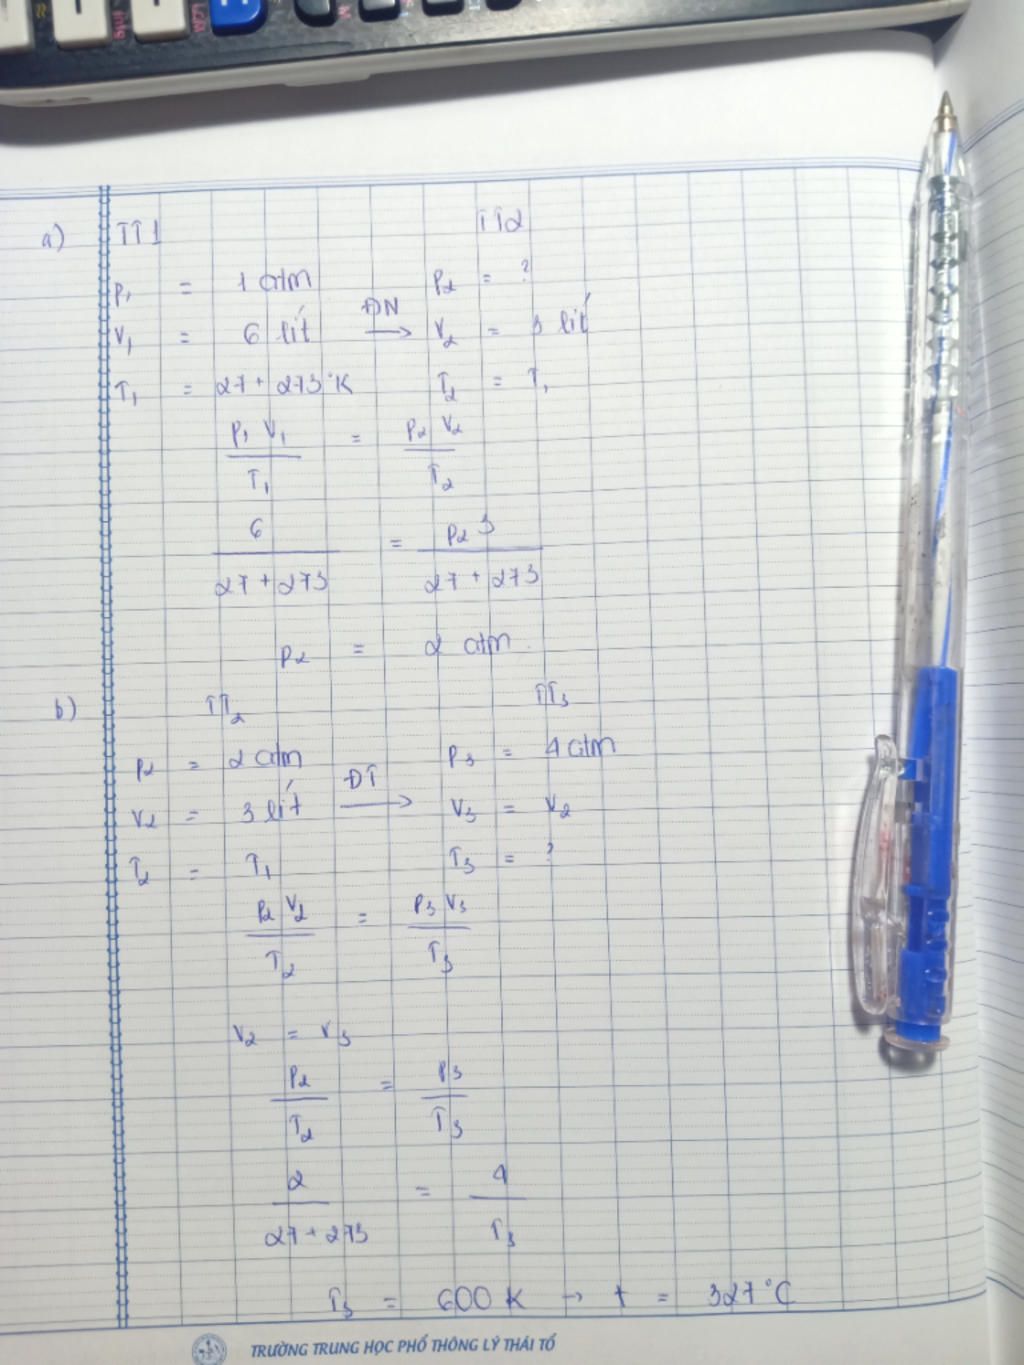 a) TT1 TT2
P₁ = 1 atm P₂ = ?
V₁ = 6 lít ĐN → V₂ = 3 lít
T₁ = 27 + 273°K T₂ = T₁
P₁ V₁ / T₁ = P₂ V₂ / T₂
6 / 27 + 273 = P₂ 3 / 27 + 273
P₂ = 2 atm.
b) TT₂ TT₃
P₂ = 2 atm P₃ = 4 atm
V₂ = 3 lít ĐT → V₃ = V₂
T₂ = T₁ T₃ = ?
P₂ V₂ / T₂ = P₃ V₃ / T₃
V₂ = V₃
P₂ / T₂ = P₃ / T₃
2 / 27 + 273 = 4 / T₃
T₃ = 600 K → t = 327°C
TRƯỜNG TRUNG HỌC PHỔ THÔNG LÝ THÁI TỔ